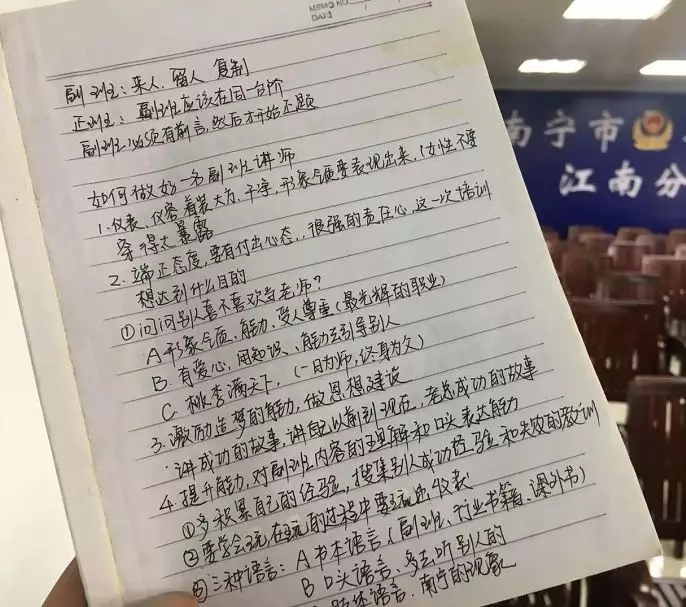 MEMO NO.
DATE / /
副班：来人、留人、复制
正班：副班应该在同一台阶
副班必须有前言，然后才开始正题
如何做好一名副班讲师
1.仪表、仪容、着装大方、干净，形象气质要表现出来，（女性不要
穿得太暴露
2.端正态度，要有付出心态，很强的责任心，这一次培训
想达到什么目的
①问问别人喜不喜欢当老师？
A 形象气质、能力、受人尊重（最光辉的职业）
B.有爱心，用知识、能力去引导别人
C 桃李满天下，（一日为师，终身为父）
3.激励造梦的能力，做思想建设
讲成功的故事，讲自己以前到现在，老总成功的故事
4.提升能力，对副班内容的理解和口头表达能力
①多积累自己的经验，搜集别人成功经验和失败的教训
②要学会玩，在玩的过程中要玩出收获
③三种语言：A 书本语言（副班、行业书籍、课外书）
B 口头语言、多去听别人的
肢体语言、南宁的现象
南宁市
江南分